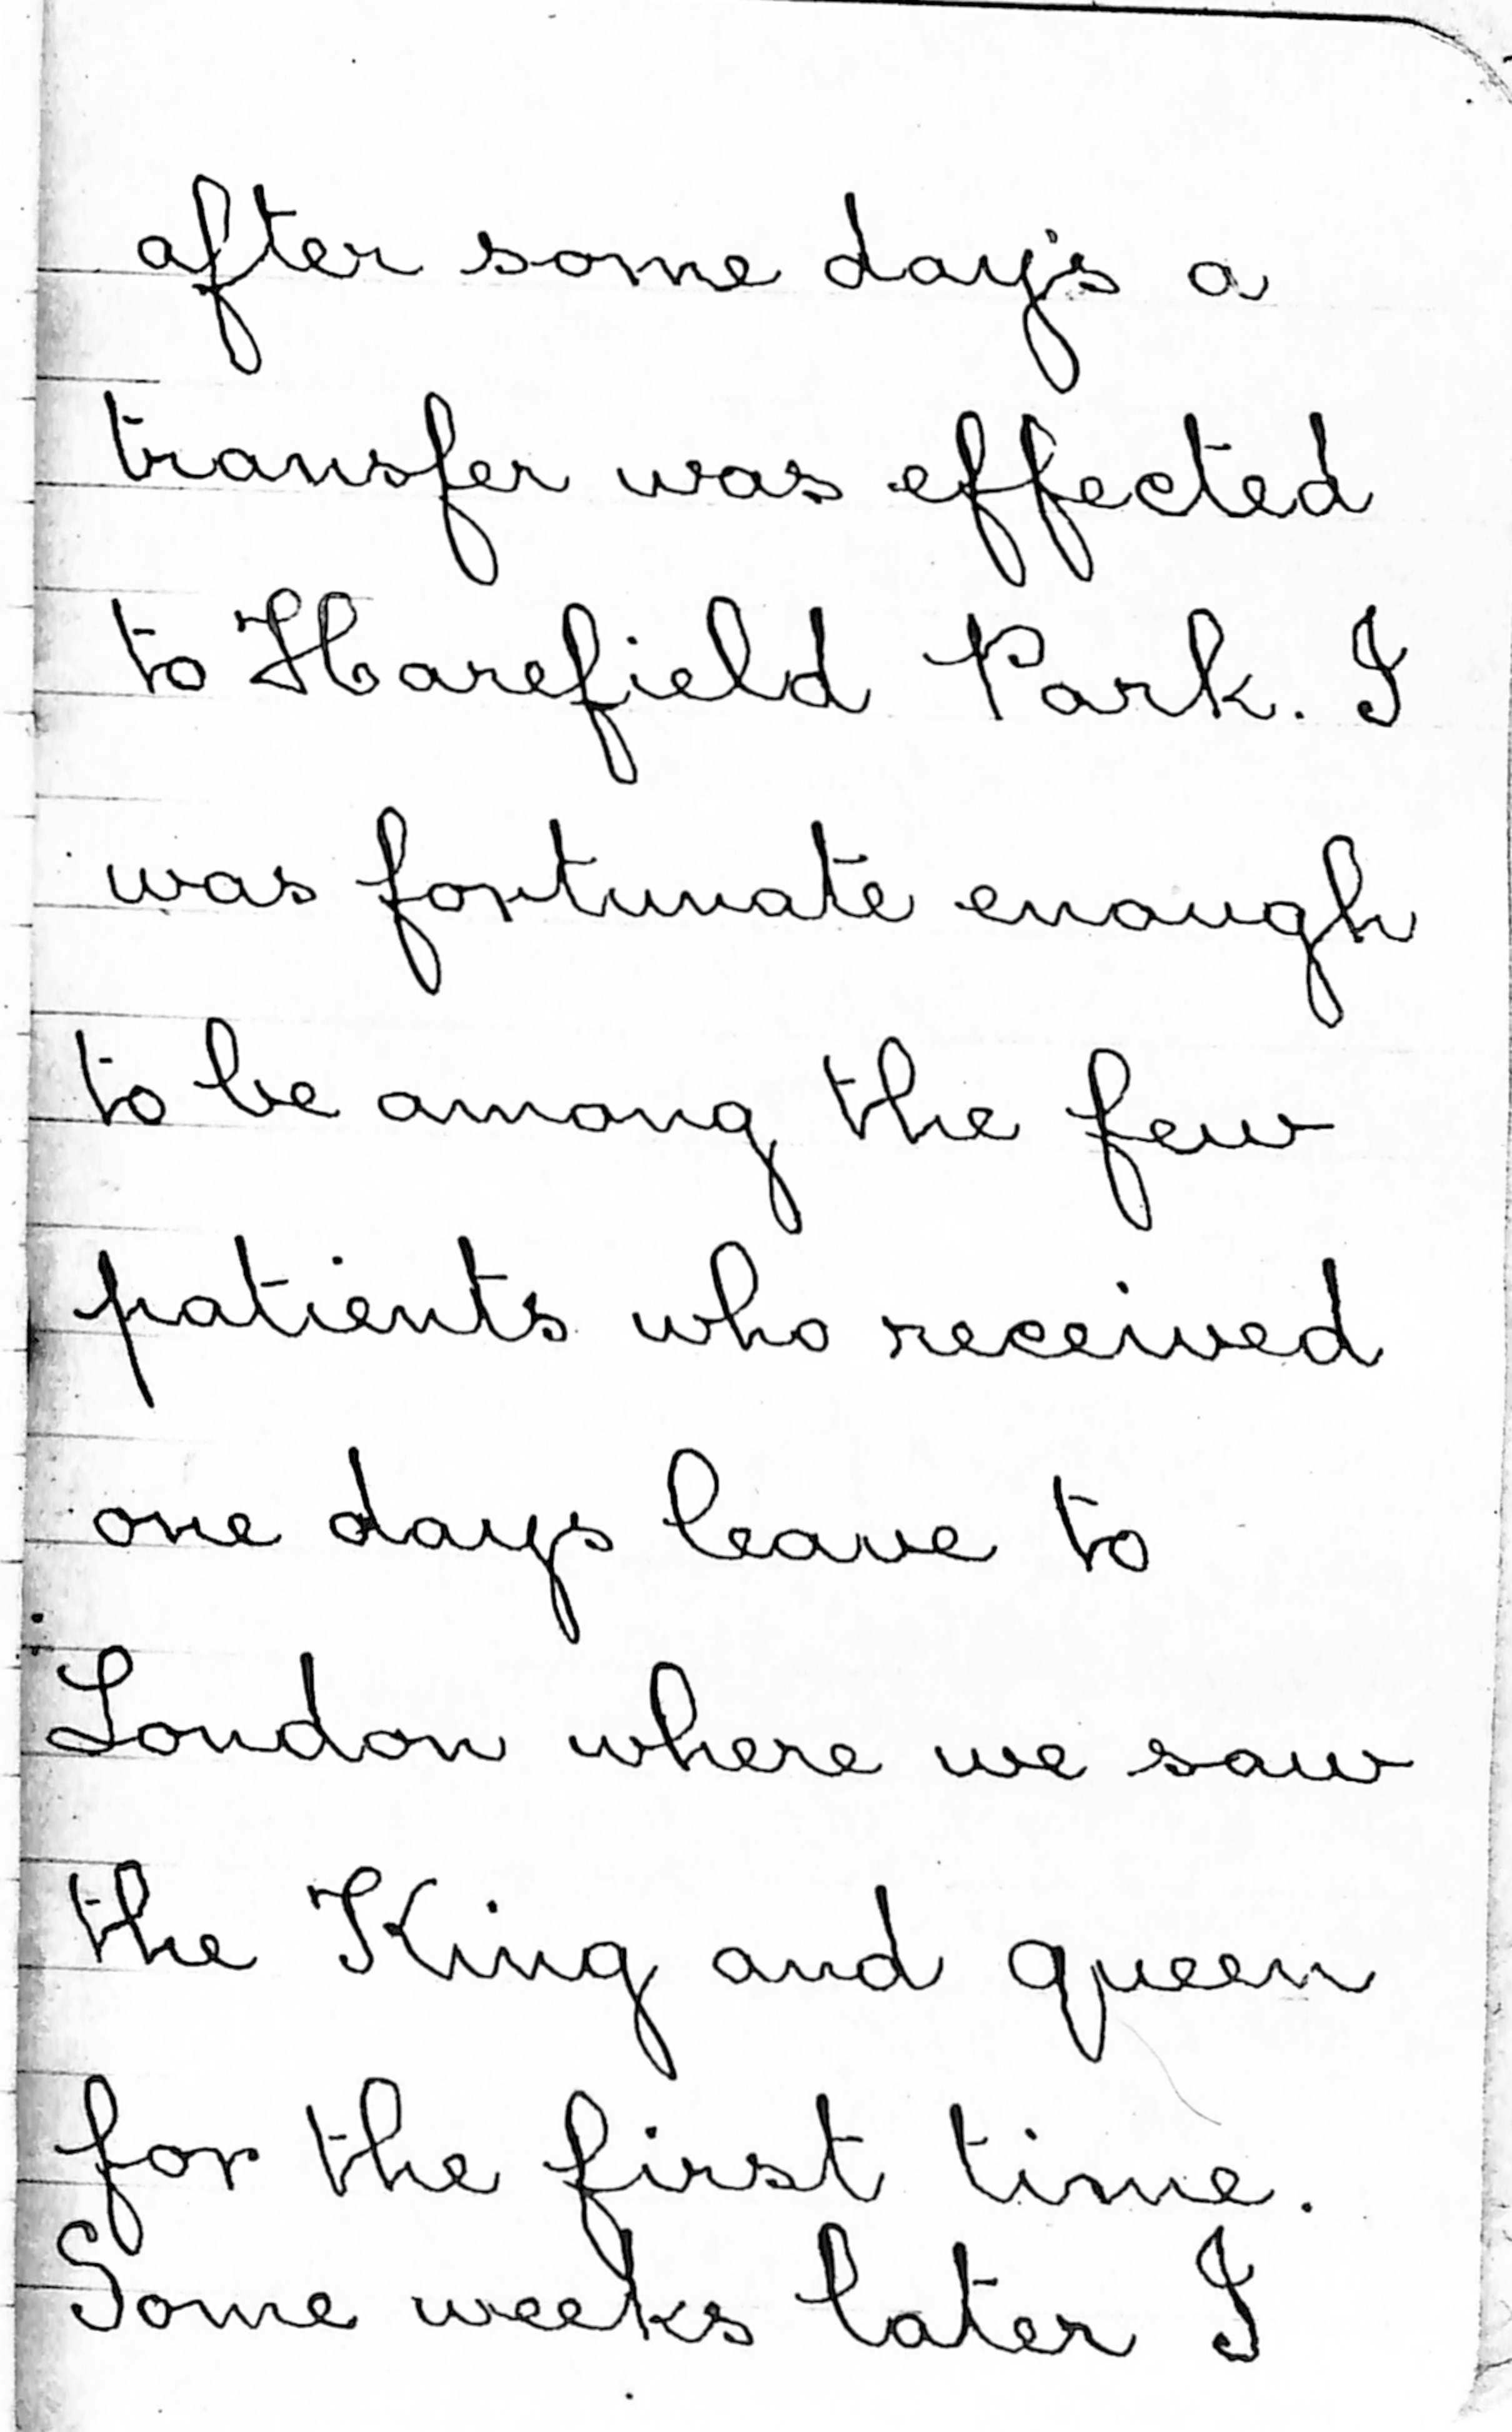 after some day's a
transfer was effected
to Harefield Park. I
was fortunate enough
to be among the few
patients who received
one days leave to
London where we saw
the King and queen
for the first time.
Some weeks later I